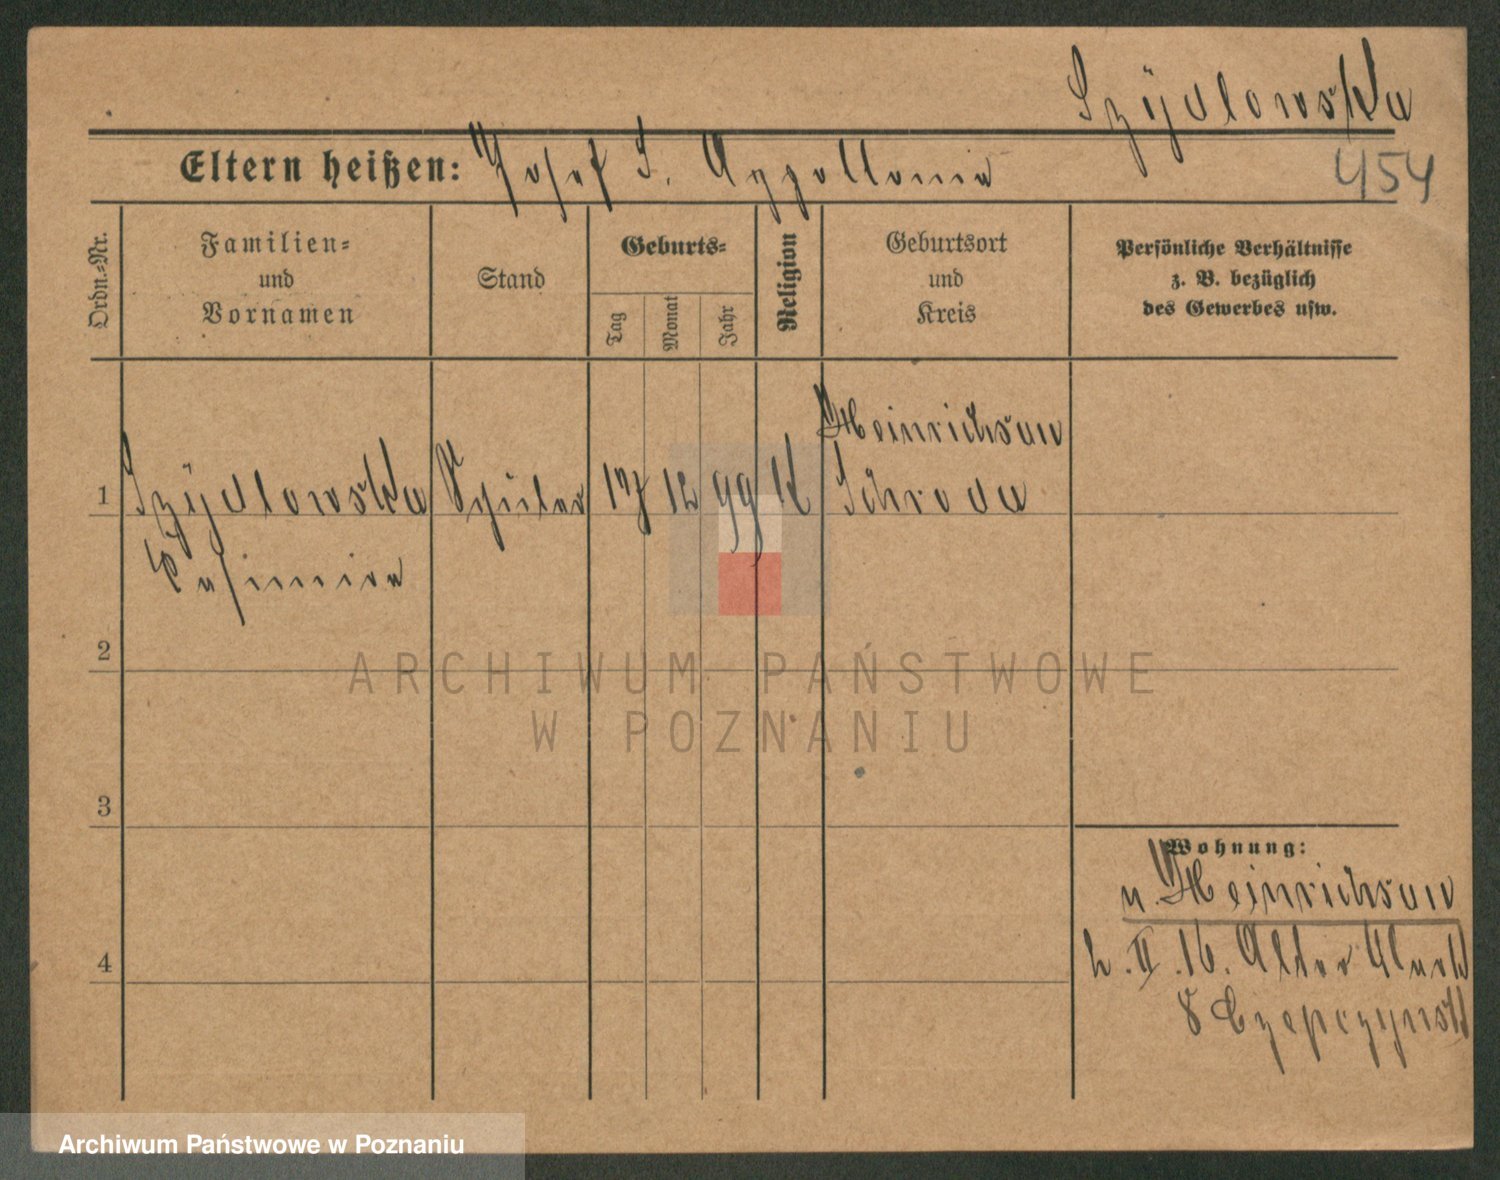 Szÿdlowska
Eltern heißen: Josef S. Appollonia
454
Ordn.=Nr.
Familien=
und
Vornamen
Stand
Geburts=
Tag
Monat
Jahr
Religion
Geburtsort
und
Kreis
Persönliche Verhältnisse
z. B. bezüglich
des Gewerbes usw.
Heinrichsau
1 Szÿdlowska 17 12 99 K Schroda
Casimira
2
ARCHIWUM PAŃSTWOWE
W POZNANIU
3
Wohnung:
n. Heinrichsau
4
2. II. 16. Alter Markt
8 Czepczynski
Archiwum Państwowe w Poznaniu